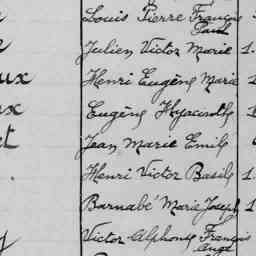 Louis Pierre François
Paul
Julien Victor Marie
Henri Eugène Marie
Eugène Hyacinthe
Jean Marie Emile
Henri Victor Basile
Barnabé Marie Joseph
Victor Alphonse François
Augt